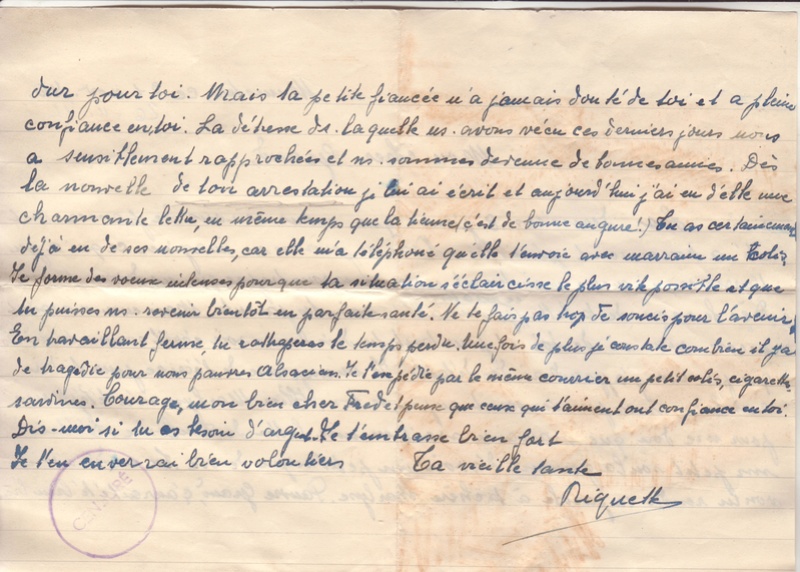 dur pour toi. Mais ta petite fiancée n'a jamais douté de toi et a pleine
confiance en toi. La détresse ds. laquelle ns. avons vécu ces derniers jours nous
a sensiblement rapprochées et ns. sommes devenue de bonnes amies. Dès
la nouvelle de ton arrestation je lui ai écrit et aujourd'hui j'ai eu d'elle une
charmante lettre, en même temps que la tienne (c'est de bonne augure!) Tu as certainement
déjà eu de ses nouvelles, car elle m'a téléphoné qu'elle t'envoie avec marraine un colis.
Je forme des voeux intenses pour que ta situation s'éclaircisse le plus vite possible et que
tu puisses ns. revenir bientôt en parfaite santé. Ne te fais pas trop de soucis pour l'avenir.
En travaillant ferme, tu rattraperas le temps perdu. Une fois de plus je constate combien il y a
de tragédie pour nous pauvres Alsaciens. Je t'expédie par le même courrier un petit colis, cigarettes
sardines. Courage, mon bien cher Fredel, pense que ceux qui t'aiment ont confiance en toi.
Dis-moi si tu as besoin d'argent. Je t'embrasse bien fort
Je t'en enverrai bien volontiers Ta vieille tante
Riquette
CENSURE